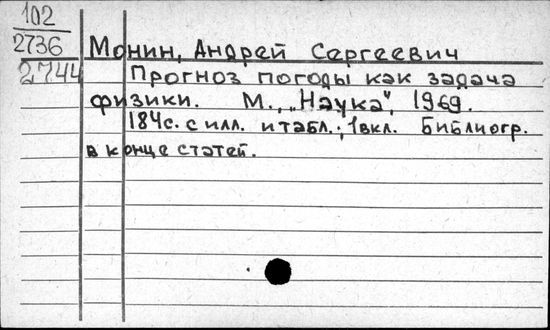 102
2736
2744
Монин, Андрей Сергеевич
Прогноз погоды как задача
физики. М., „Наука", 1969.
184с. с илл. и табл.; 1вкл. Библиогр.
в конце статей.